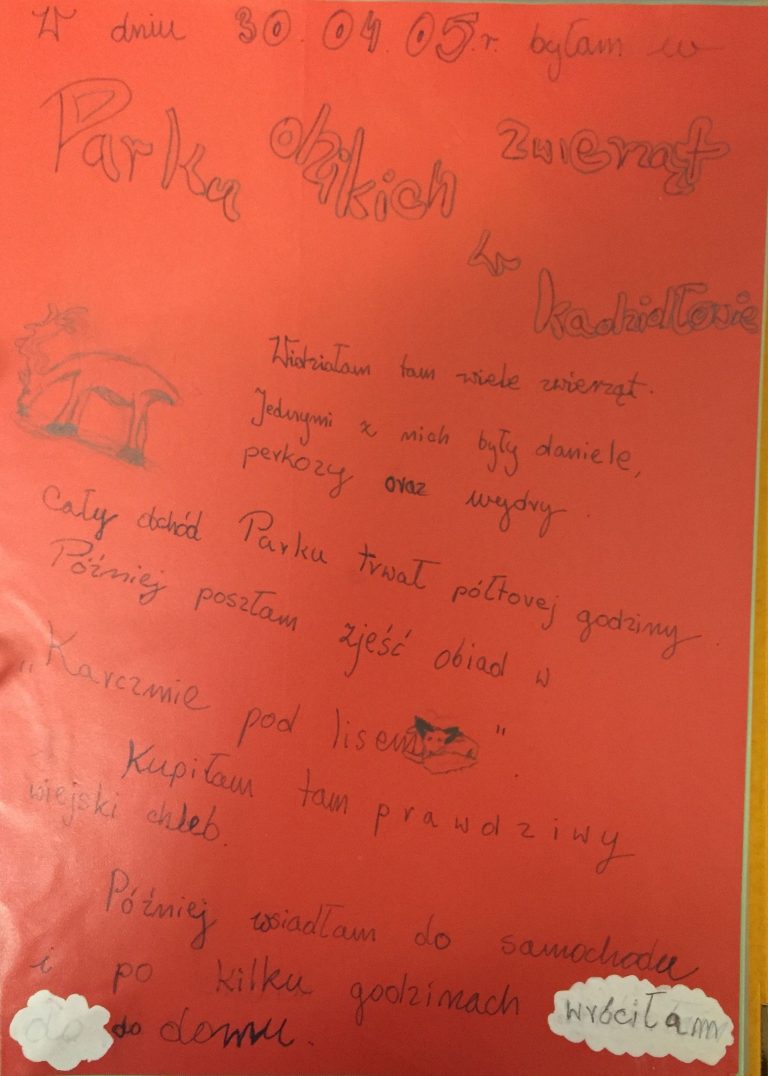 W dniu 30 04 05 r. byłam w
Parku dzikich zwierząt
w
Kadzidłowie
Widziałam tam wiele zwierząt.
Jednymi z nich były daniele,
perkozy oraz wydry.
Cały obchód Parku trwał półtovej godziny.
Później poszłam zjeść obiad w
„Karczmie pod lisem".
Kupiłam tam prawdziwy
wiejski chleb.
Później wsiadłam do samochodu
i po kilku godzinach wróciłam
do do domu.